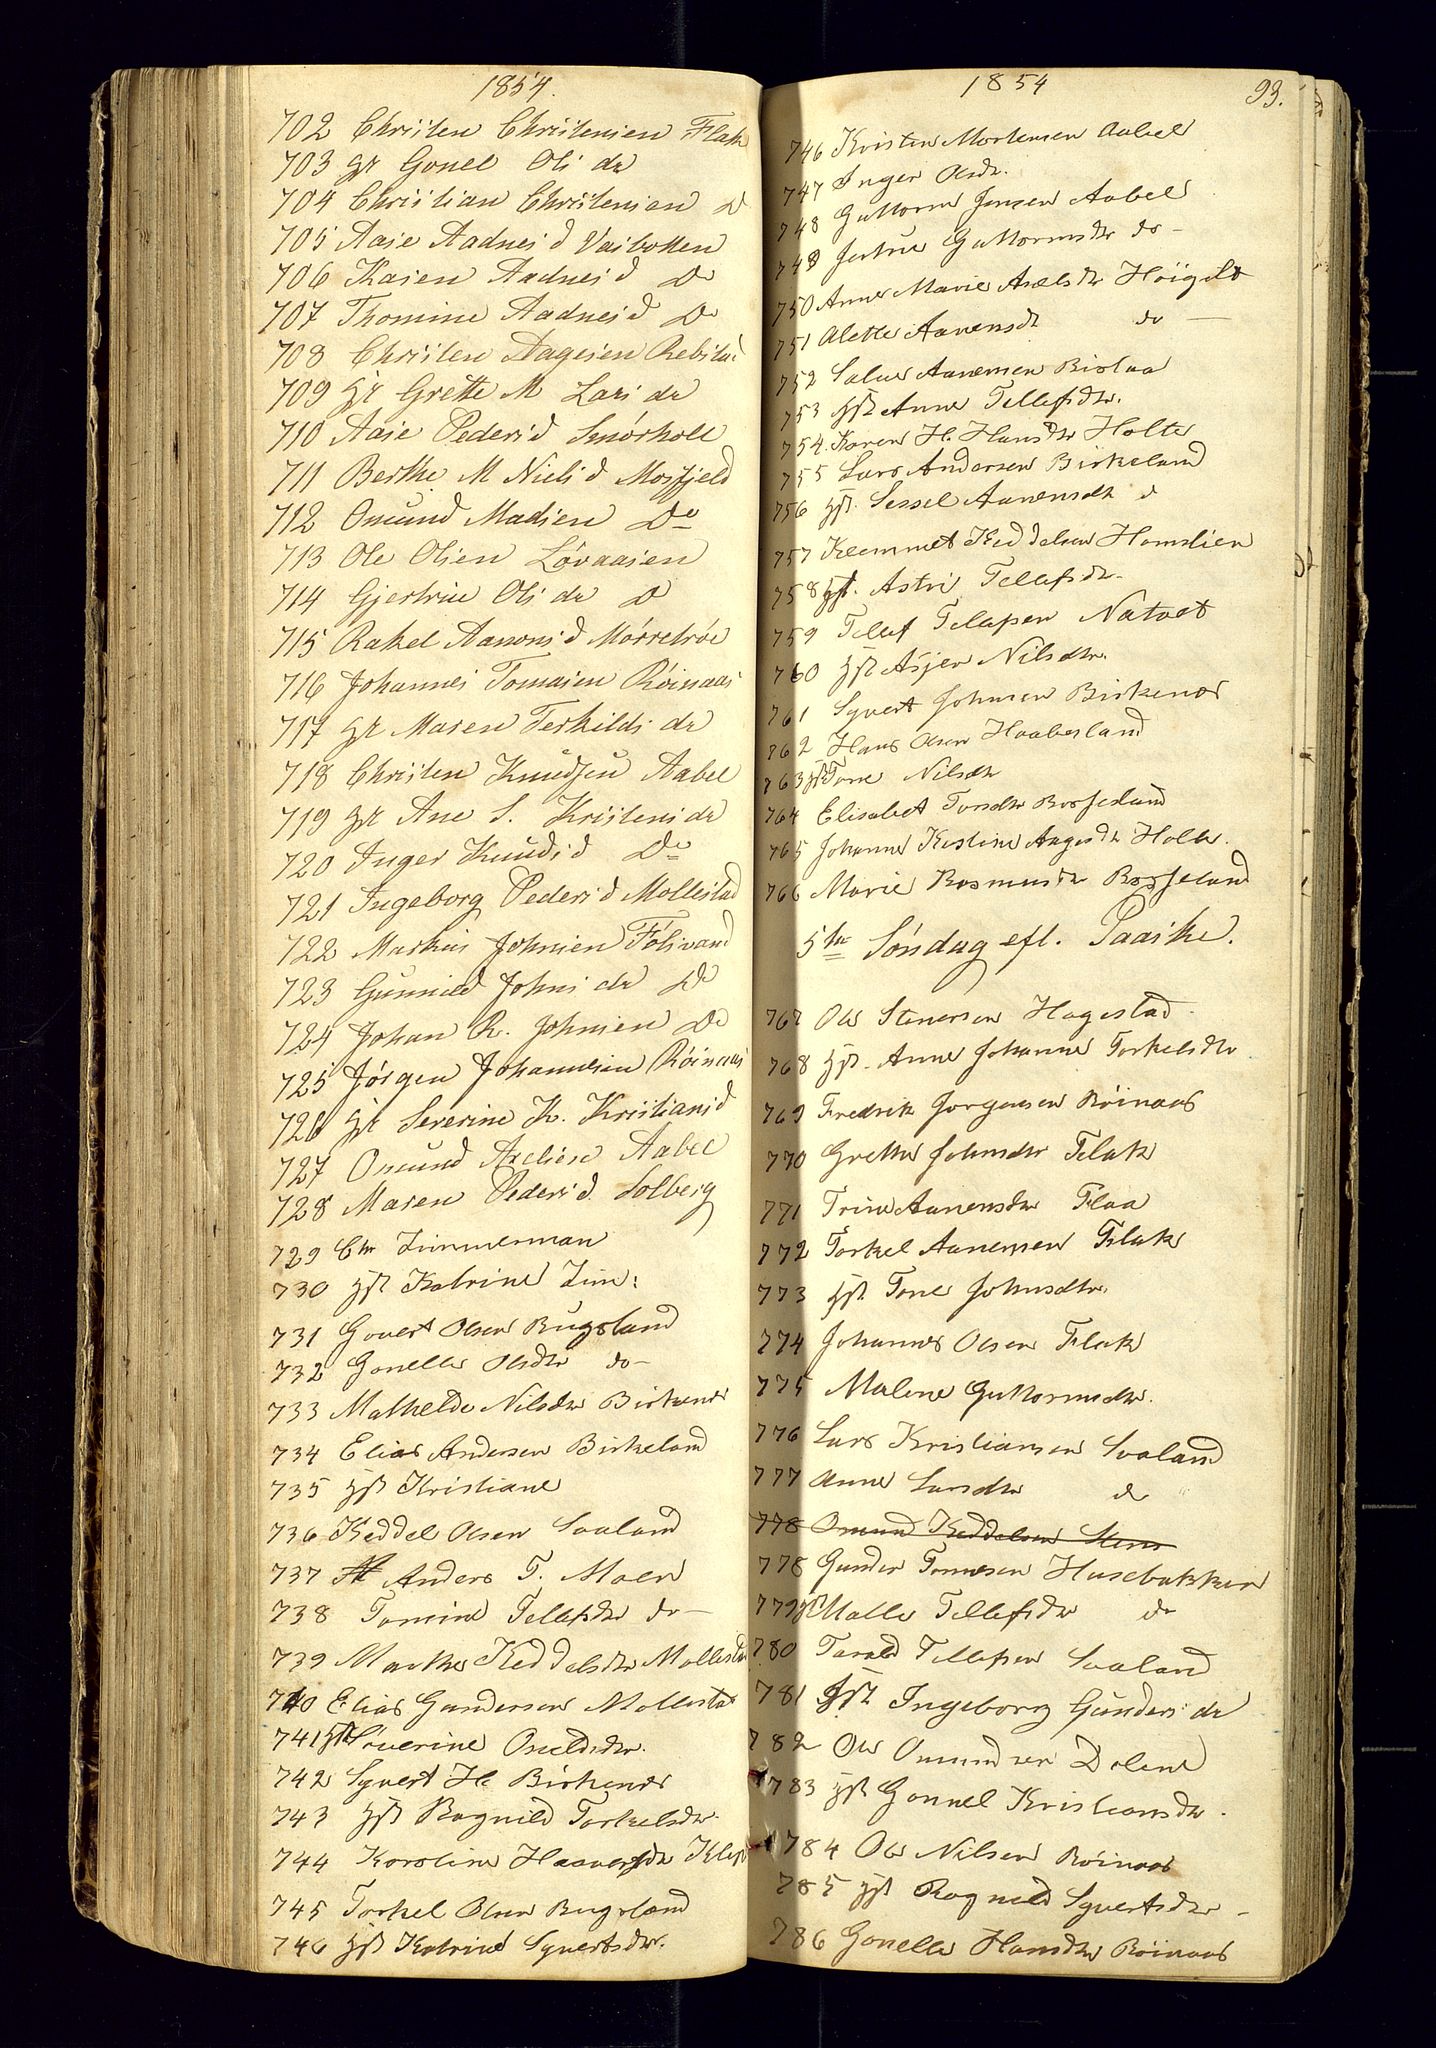 1854.
702 Christen Christensen Flak
703 Hr Gonel Ols dr
704 Christian Christensen Do
705 Aase Aadnes d Vasbotten
706 Kasen Aadnes d Do
707 Thomine Aadnes d Do
708 Christen Aagesen Rebstad
709 Hr Grethe M Lars dr
710 Aase Peders d Smörholt
711 Berthe M Niels d Mosfjeld
712 Omund Madsen Do
713 Ole Olsen Lövaasen
714 Gjertrue Ols dr Do
715 Rakel Aanons d Mörretröe
716 Johannes Tomasen Röinaas
717 Hr Maren Terkilds dr
718 Christen Knudsen Aabel
719 Hr Ane S. Kristens dr
720 Inger Knuds d Do
721 Ingeborg Peders d Mollestad
722 Markus Johnsen Fölsvand
723 Gunnild Johns dr Do
724 Johan R. Johnsen Do
725 Jörgen Johannesen Röinaas
726 Hr Severine K. Kristians d
727 Omund Axelsen Aabel
728 Maren Peders d Solberg
729 Chr Zimmerman
730 Hst Katrine Zim:
731 Govert Olsen Bugsland
732 Gonelle Olsdtr do –
733 Mathelde Nilsdtr Birkenes
734 Elias Andersen Birkeland
735 Hst Kristiane
736 Keddel Olsen Svaland
737 Anders T. Moen
738 Tomine Tellefsdtr do –
739 Marthe Keddelsdtr Mollestad
740 Elias Gundersen Mollestad
741 Hst Severine Oseldsdtr.
742 Syvert H. Birkenes
743 Hst Ragnild Torkelsdtr.
744 Karoline Haaversdtr Klep
745 Torkel Olsen Bugsland
746 Hst Katrine Syvertsdtr.
1854
93.
746 Kristen Mortensen Aabel
747 Inger Olsdr.
748 Guttorm Jensen Aabel
749 Jertrue Guttormsdtr do –
750 Anne Marie Axelsdtr Höigilt
751 Alette Aanensdtr do –
752 Salve Aanensen Birlaa
753 Hst Anne Tellefsdtr.
754. Karen H. Hansdtr Holte
755 Lars Andersen Birkeland
756 Hst. Sessel Aanensdtr d
757 Klemmet Keddelsen Homslien
758 Hst. Astri Tellefsdtr.
759 Tellef Tellefsen Natvet
760 Hst Asjer Nilsdtr.
761 Syvert Johnsen Birkenes
762 Hans Olsen Haabesland
763 Hst Tone Nilsdtr
764 Elisabet Torsdtr Bosseland
765 Johanne Kistine Aagesdtr Holte.
766 Marie Rasmusdtr Bosseland
5te Söndag eft. Paaske.
767 Ole Stenersen Hagestad
768 Hst. Anne Johanne Torkelsdtr
769 Fredrik Jorgensen Röinaas
770 Grethe Johnsdtr Flak
771 Trine Aanensdtr Flaa
772 Torkel Aanensen Flak
773 Hst. Tone Johnsdtr.
774 Johannes Olsen Flak
775 Malene Guttormsdtr.
776 Lars Kristiansen Svaland
777 Anne Larsdtr do
778 Omund Keddelsen Stene
778 Gunder Tomesen Husebakken
779 Hst Malle Tellefsdtr do
780 Tarald Tellefsen Svaland
781 Hst Ingeborg Gunders dr
782 Ole Omundsen Dolene
783 Hst Gonnel Kristiansdtr.
784 Ole Nilsen Röinaas
785 Hst Ragnild Syvertsdtr –
786 Gonelle Hansdtr Röinaas